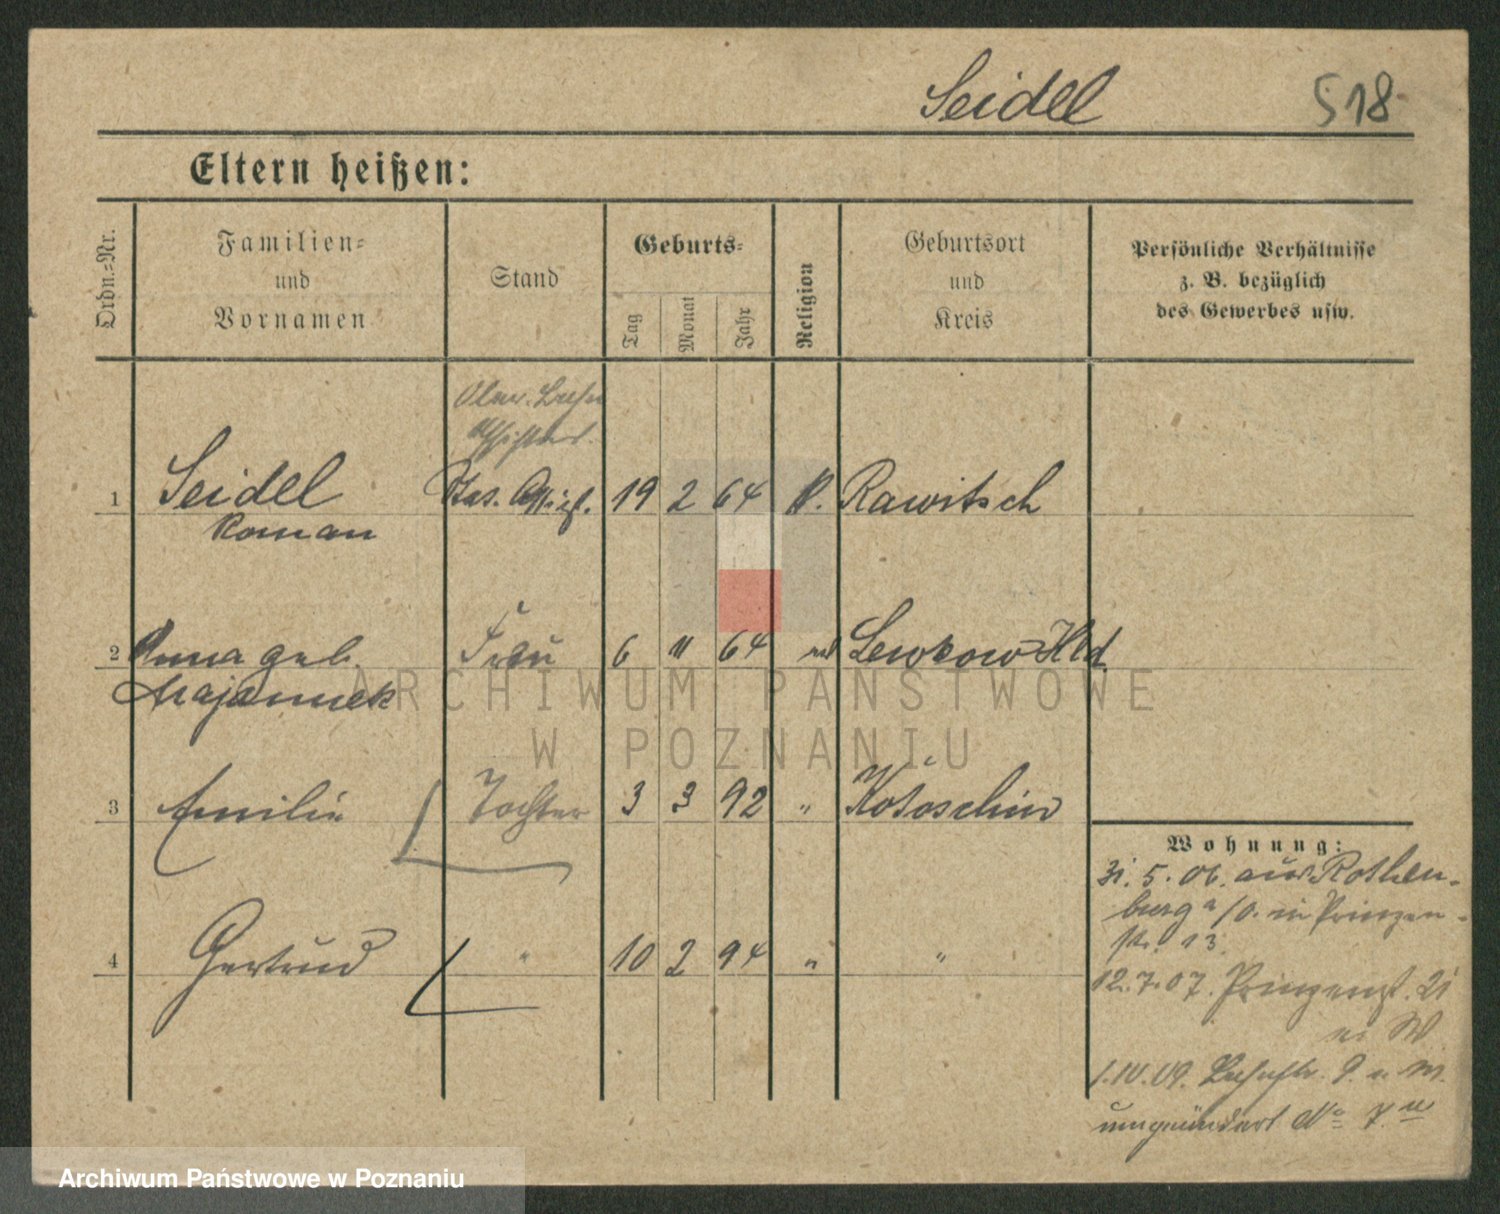 Seidel 518
Eltern heißen:
Ordn.-Nr.
Familien-
und
Vornamen
Stand
Geburts-
Tag
Monat
Jahr
Religion
Geburtsort
und
Kreis
Persönliche Verhältnisse
z. B. bezüglich
des Gewerbes usw.
1 Seidel 19 2 64 Rawitsch
Roman
2 Anna geb. Frau 6 11 64 Lewkow Hld.
3 Emilie Tochter 3 3 92 " Kotoschin
4 Gertrud " 10 2 94 " "
Wohnung:
31. 5. 06. aus Rothen-
burg a/O. in Prinzen-
str. 13.
12. 7. 07. Prinzenst. 21
W
No 7
ARCHIWUM PAŃSTWOWE
W POZNANIU
Archiwum Państwowe w Poznaniu